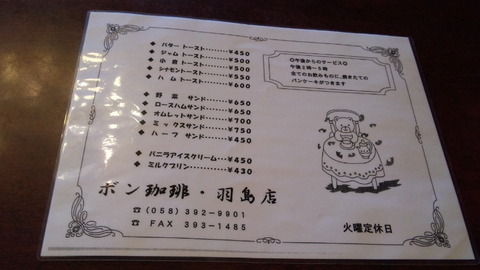 ◆ バタートースト・・・・・・・¥450
◆ ジャムトースト・・・・・・・¥500
◆ 小倉トースト・・・・・・・¥500
◆ シナモントースト・・・・・・・¥550
◆ ハムトースト・・・・・・・¥600
◆ 野菜サンド・・・・・・・¥650
◆ ロースハムサンド・・・・・・・¥650
◆ オムレットサンド・・・・・・・¥700
◆ ミックスサンド・・・・・・・¥750
◆ ハーフサンド・・・・・・・¥450
◆ バニラアイスクリーム・・・¥450
◆ ミルクプリン・・・・・・・¥430
✪午後からのサービス✪
午後2時〜5時
全てのお飲みものに、焼きたての
パンケーキがつきます
ボン珈琲・羽島店
☎(058)392-9901
☎ FAX 393-1485
火曜定休日